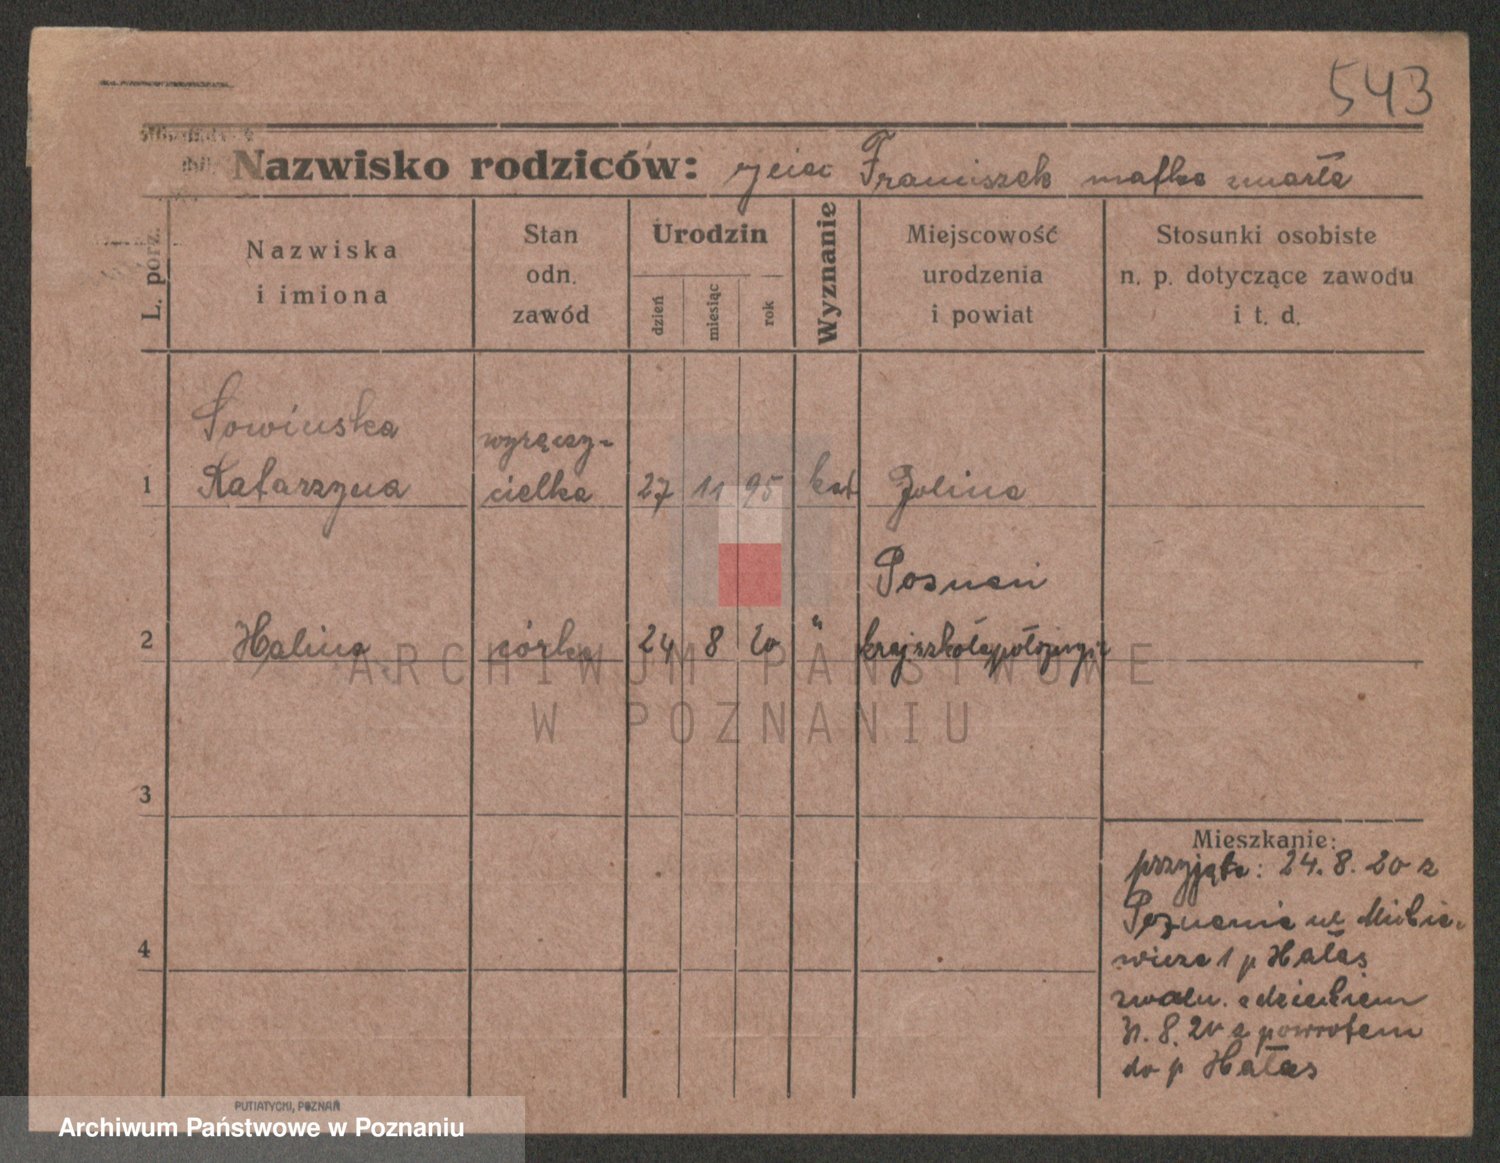 543
Nazwisko rodziców: ojciec Franciszek matka zmarła
L. porz.
Nazwiska
i imiona
Stan
odn.
zawód
Urodzin
dzień
miesiąc
rok
Wyznanie
Miejscowość
urodzenia
i powiat
Stosunki osobiste
n. p. dotyczące zawodu
i t. d.
1
Sowińska
Katarzyna
wyręczy-
cielka
27 11 95
kat
Zolina
2
Halina
córka
24 8 20
"
Poznań
kraj szkoła położnych
3
4
Mieszkanie:
przyjęta: 24. 8. 20 z
Poznania ul Mickie-
wicza 1 p Hałas
zwoln. z dzieckiem
31. 8. 20 z powrotem
do p Hałas
PUTIATYCKI, POZNAŃ
ARCHIWUM PAŃSTWOWE
W POZNANIU
Archiwum Państwowe w Poznaniu